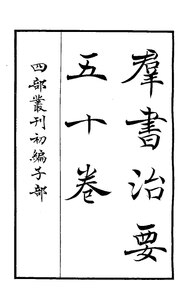 羣書治要
五十卷
四部叢刊初編子部